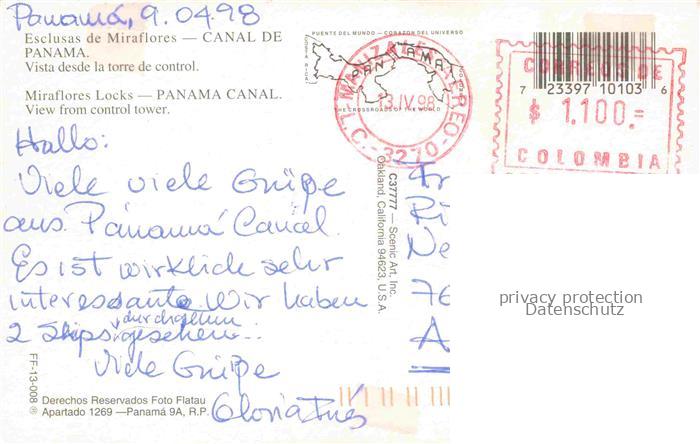 Panamá, 9.04.98
Esclusas de Miraflores — CANAL DE
PANAMA.
Vista desde la torre de control.
Miraflores Locks — PANAMA CANAL.
View from control tower.
PUENTE DEL MUNDO — CORAZON DEL UNIVERSO
PANAMA
THE CROSSROADS OF THE WORLD
MANIZALES
13.IV.98
3270
CORREOS DE
7 23397 10103 6
$ 1.100.=
COLOMBIA
Hallo:
Viele viele Grüpe
aus Panamá Canal.
Es ist wirklich sehr
interessante Wir haben
durchgehen
2 Ships gesehen..
Viele Grüpe
Gloria Inés
C37777 — Scenic Art, Inc.
Oakland, California 94623, U.S.A.
Fr
Ri
Ne
76
A
privacy protection
Datenschutz
FF-13-008 ®
Derechos Reservados Foto Flatau
Apartado 1269 — Panamá 9A, R.P.